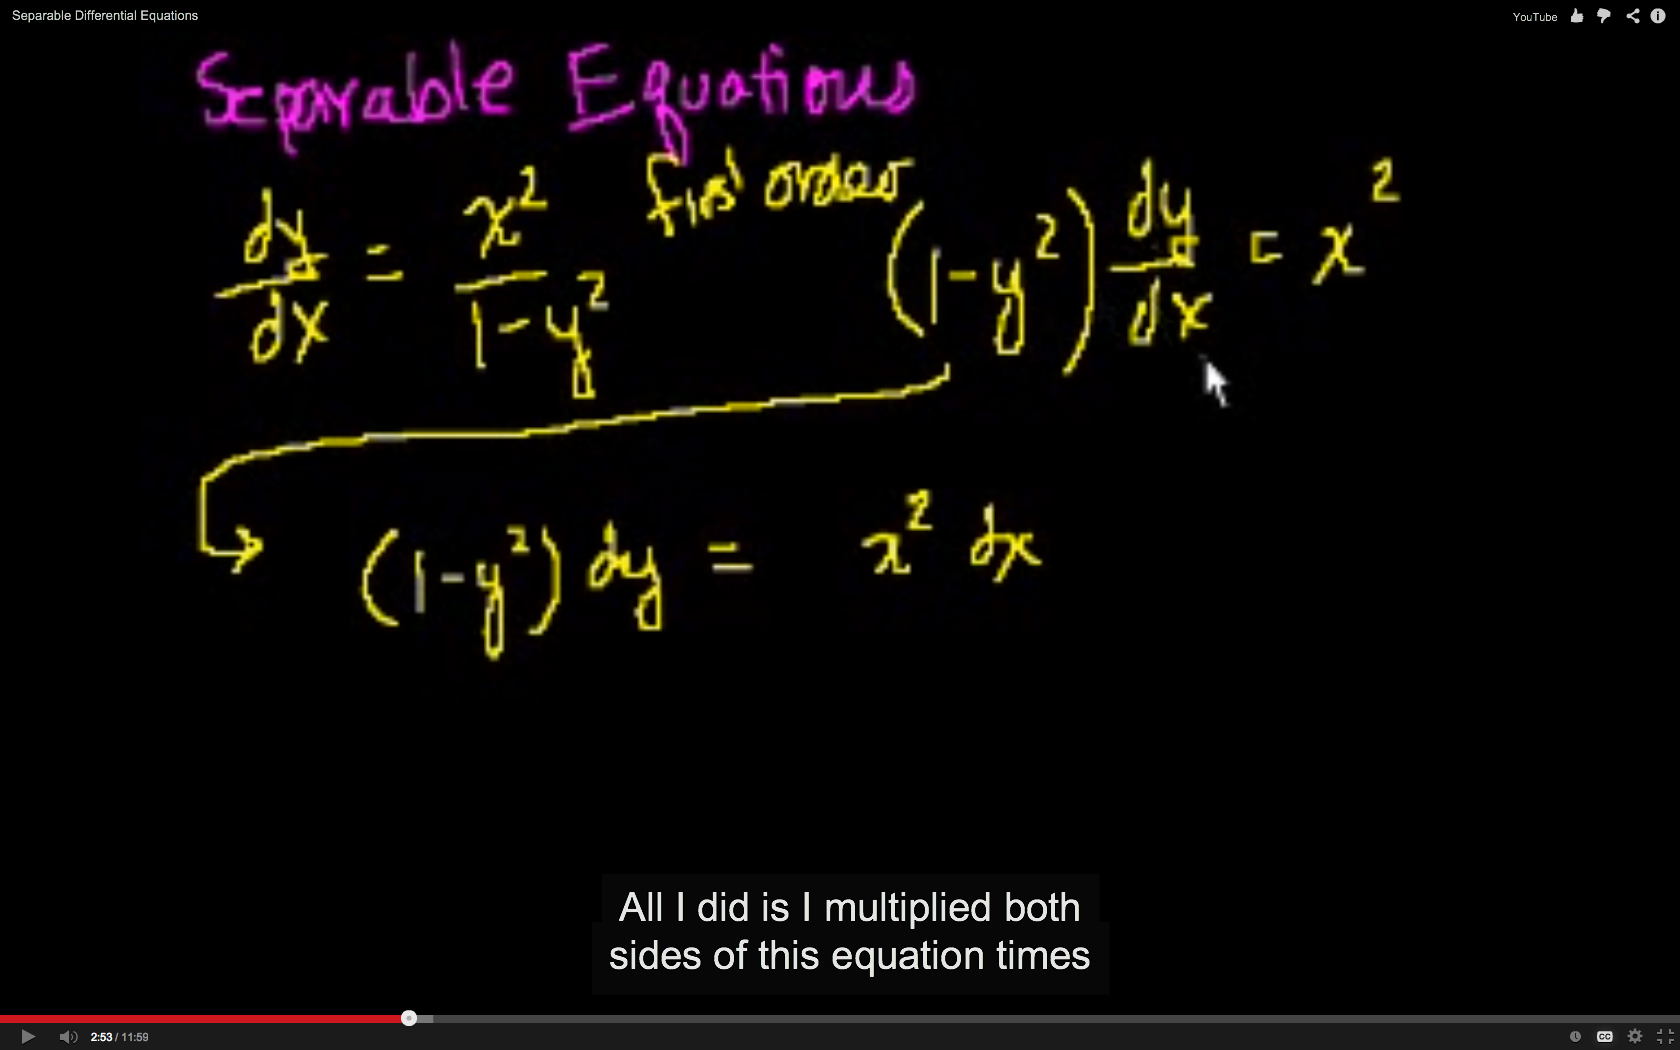 Separable Differential Equations
YouTube
Separable Equations
first order
dy/dx = x²/(1-y²)
(1-y²) dy/dx = x²
(1-y²) dy = x² dx
All I did is I multiplied both
sides of this equation times
2:53 / 11:59
CC